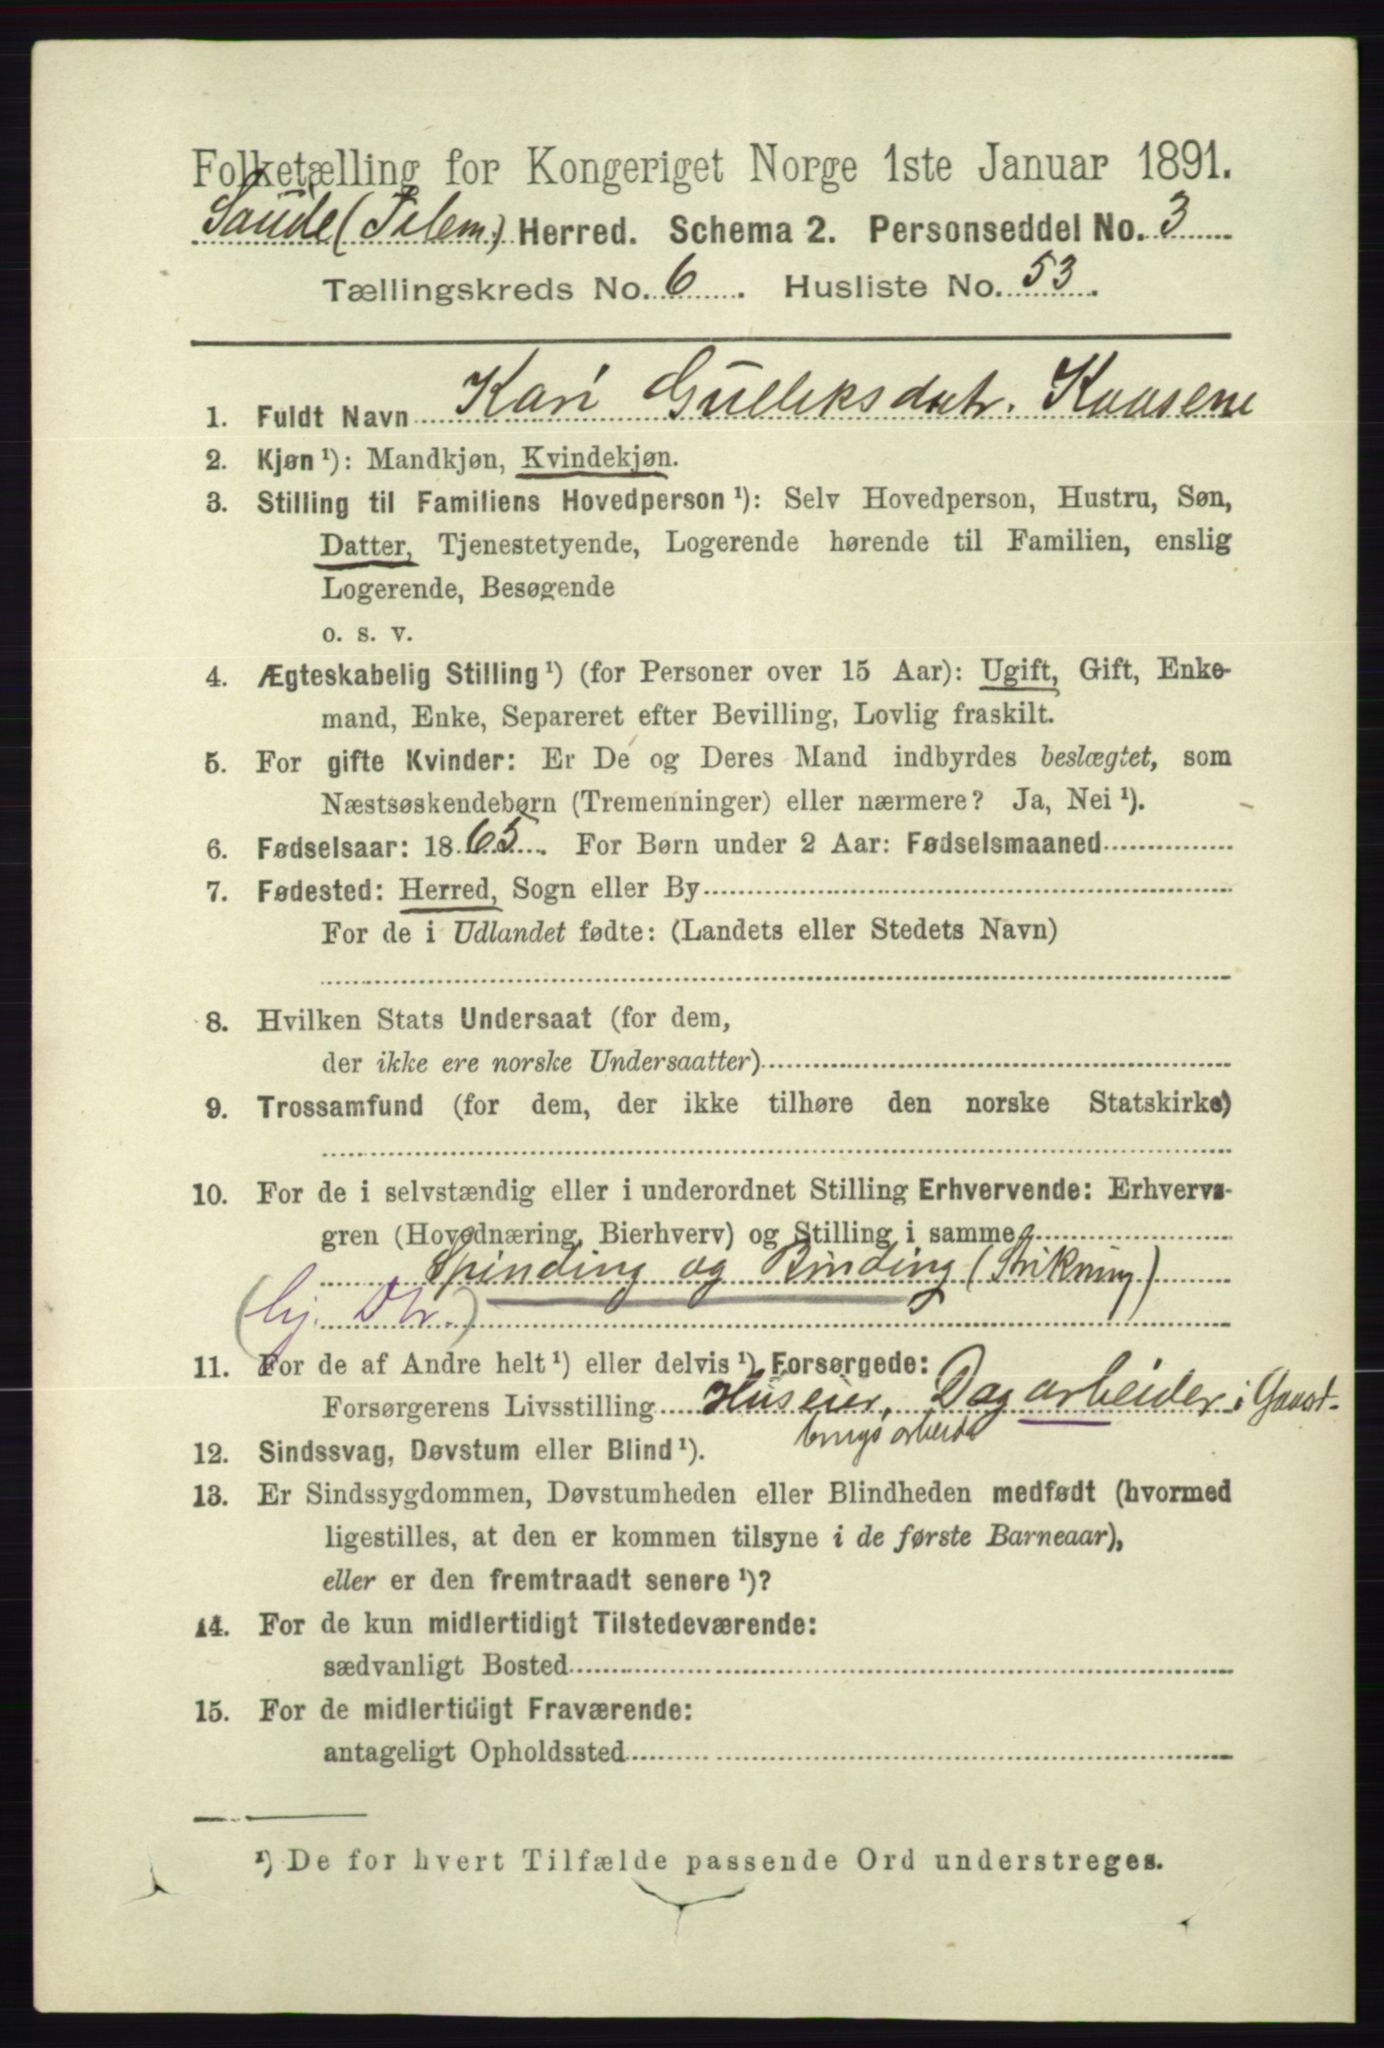 Folketælling for Kongeriget Norge 1ste Januar 1891.
Saude (Tilem.) Herred. Schema 2. Personseddel No. 3
Tællingskreds No. 6. Husliste No. 53.
1. Fuldt Navn Kari Gulliksdatr. Kaasene
2. Kjøn ¹): Mandkjøn, Kvindekjøn.
3. Stilling til Familiens Hovedperson ¹): Selv Hovedperson, Hustru, Søn,
Datter, Tjenestetyende, Logerende hørende til Familien, enslig
Logerende, Besøgende
o. s. v.
4. Ægteskabelig Stilling ¹) (for Personer over 15 Aar): Ugift, Gift, Enke-
mand, Enke, Separeret efter Bevilling, Lovlig fraskilt.
5. For gifte Kvinder: Er De og Deres Mand indbyrdes beslægtet, som
Næstsøskendebørn (Tremenninger) eller nærmere? Ja, Nei ¹).
6. Fødselsaar: 1865. For Børn under 2 Aar: Fødselsmaaned
7. Fødested: Herred, Sogn eller By
For de i Udlandet fødte: (Landets eller Stedets Navn)
8. Hvilken Stats Undersaat (for dem,
der ikke ere norske Undersaatter)
9. Trossamfund (for dem, der ikke tilhøre den norske Statskirke)
10. For de i selvstændig eller i underordnet Stilling Erhvervende: Erhvervs-
gren (Hovednæring, Bierhverv) og Stilling i samme
Spinding og Binding (Strikning)
(hj. Dtr.)
11. For de af Andre helt ¹) eller delvis ¹) Forsørgede:
Forsørgerens Livsstilling Huseier, Dagarbeider i Gaard-
brugsarbeide
12. Sindssvag, Døvstum eller Blind ¹).
13. Er Sindssygdommen, Døvstumheden eller Blindheden medfødt (hvormed
ligestilles, at den er kommen tilsyne i de første Barneaar),
eller er den fremtraadt senere ¹)?
14. For de kun midlertidigt Tilstedeværende:
sædvanligt Bosted
15. For de midlertidigt Fraværende:
antageligt Opholdssted
¹) De for hvert Tilfælde passende Ord understreges.